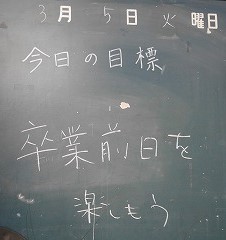 3月5日火曜日
今日の目標
卒業前日を
楽しもう